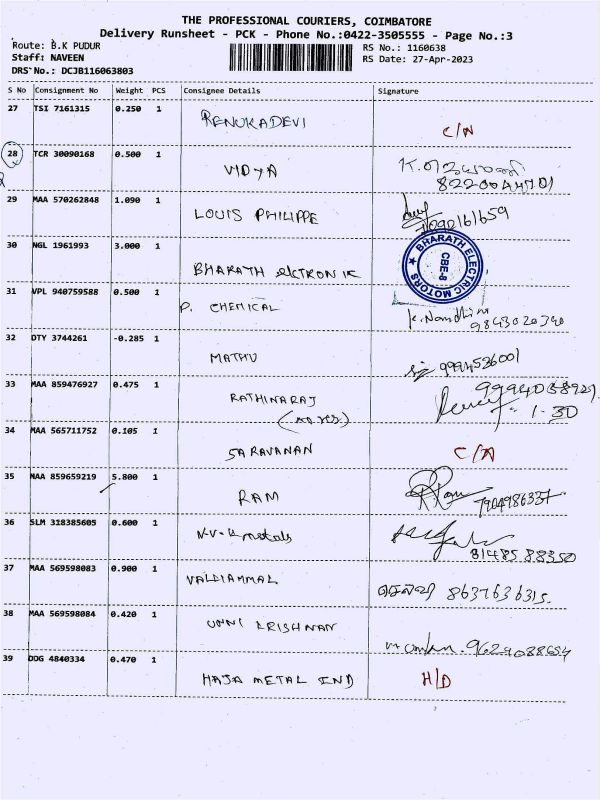 THE PROFESSIONAL COURIERS, COIMBATORE
Delivery Runsheet - PCK - Phone No.:0422-3505555 - Page No.:3
Route: B.K PUDUR RS No.: 1160638
Staff: NAVEEN RS Date: 27-Apr-2023
DRS No.: DCJB116063803
S No Consignment No Weight PCS Consignee Details Signature
27 TSI 7161315 0.250 1 RENUKADEVI C/N
28 TCR 30090168 0.500 1 VIDYA
29 MAA 570262848 1.090 1 LOUIS PHILIPPE
30 NGL 1961993 3.000 1 BHARATH
BHARATH ELECTRIC MOTORS CBE-8
31 VPL 940759588 0.500 1 P. CHEMICAL K. Nandhini
9843020340
32 DTY 3744261 -0.285 1 MATHU 9994526001
33 MAA 859476927 0.475 1 RATHINARAJ
1-30
34 MAA 565711752 0.105 1 SARAVANAN C/A
35 MAA 859659219 5.800 1 RAM 7904986337
36 SLM 318385605 0.600 1 N.V.K metals
8148588350
37 MAA 569598083 0.900 1 VALLIAMMAL செல்வி 8637636315.
38 MAA 569598084 0.420 1 UNNI KRISHNAN
39 DDG 4840334 0.470 1 HAJA METAL IND H/D